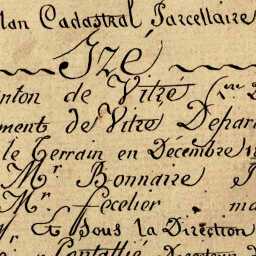 lan Cadastral Parcellaire
Izé
nton de Vitré
ment de Vitre Depar
le Terrain en Décembre 18
Mr Bonnaire
Mr fecelier ma
Mr & Sous la Direction